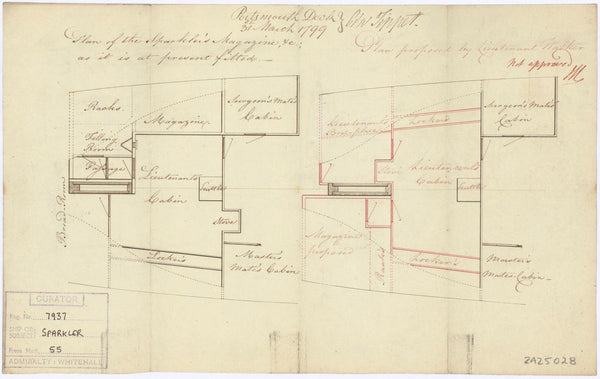 Portsmouth Dock
31 March 1799
Plan of the Sparkler's Magazine &c;
as it is at present fitted. —
Plan proposed by Lieutenant Walker
Not approved
Racks
Magazine
Surgeon's Mates
Cabin
Filling
Room
Passage
Bread Room
Lieutenants
Cabin
Scuttle
Stove
Lockers
Master's
Mate's Cabin
Lieutenants
Lockers
Surgeon's Mates
Cabin
Stove
Lieutenants
Cabin
Scuttle
Magazine
proposed
Racks
Lockers
Master's
Mates Cabin
CURATOR
Reg. No. 7937
SHIP OR
SUBJECT SPARKLER
Press Mark 55
ADMIRALTY : WHITEHALL
2A2502B